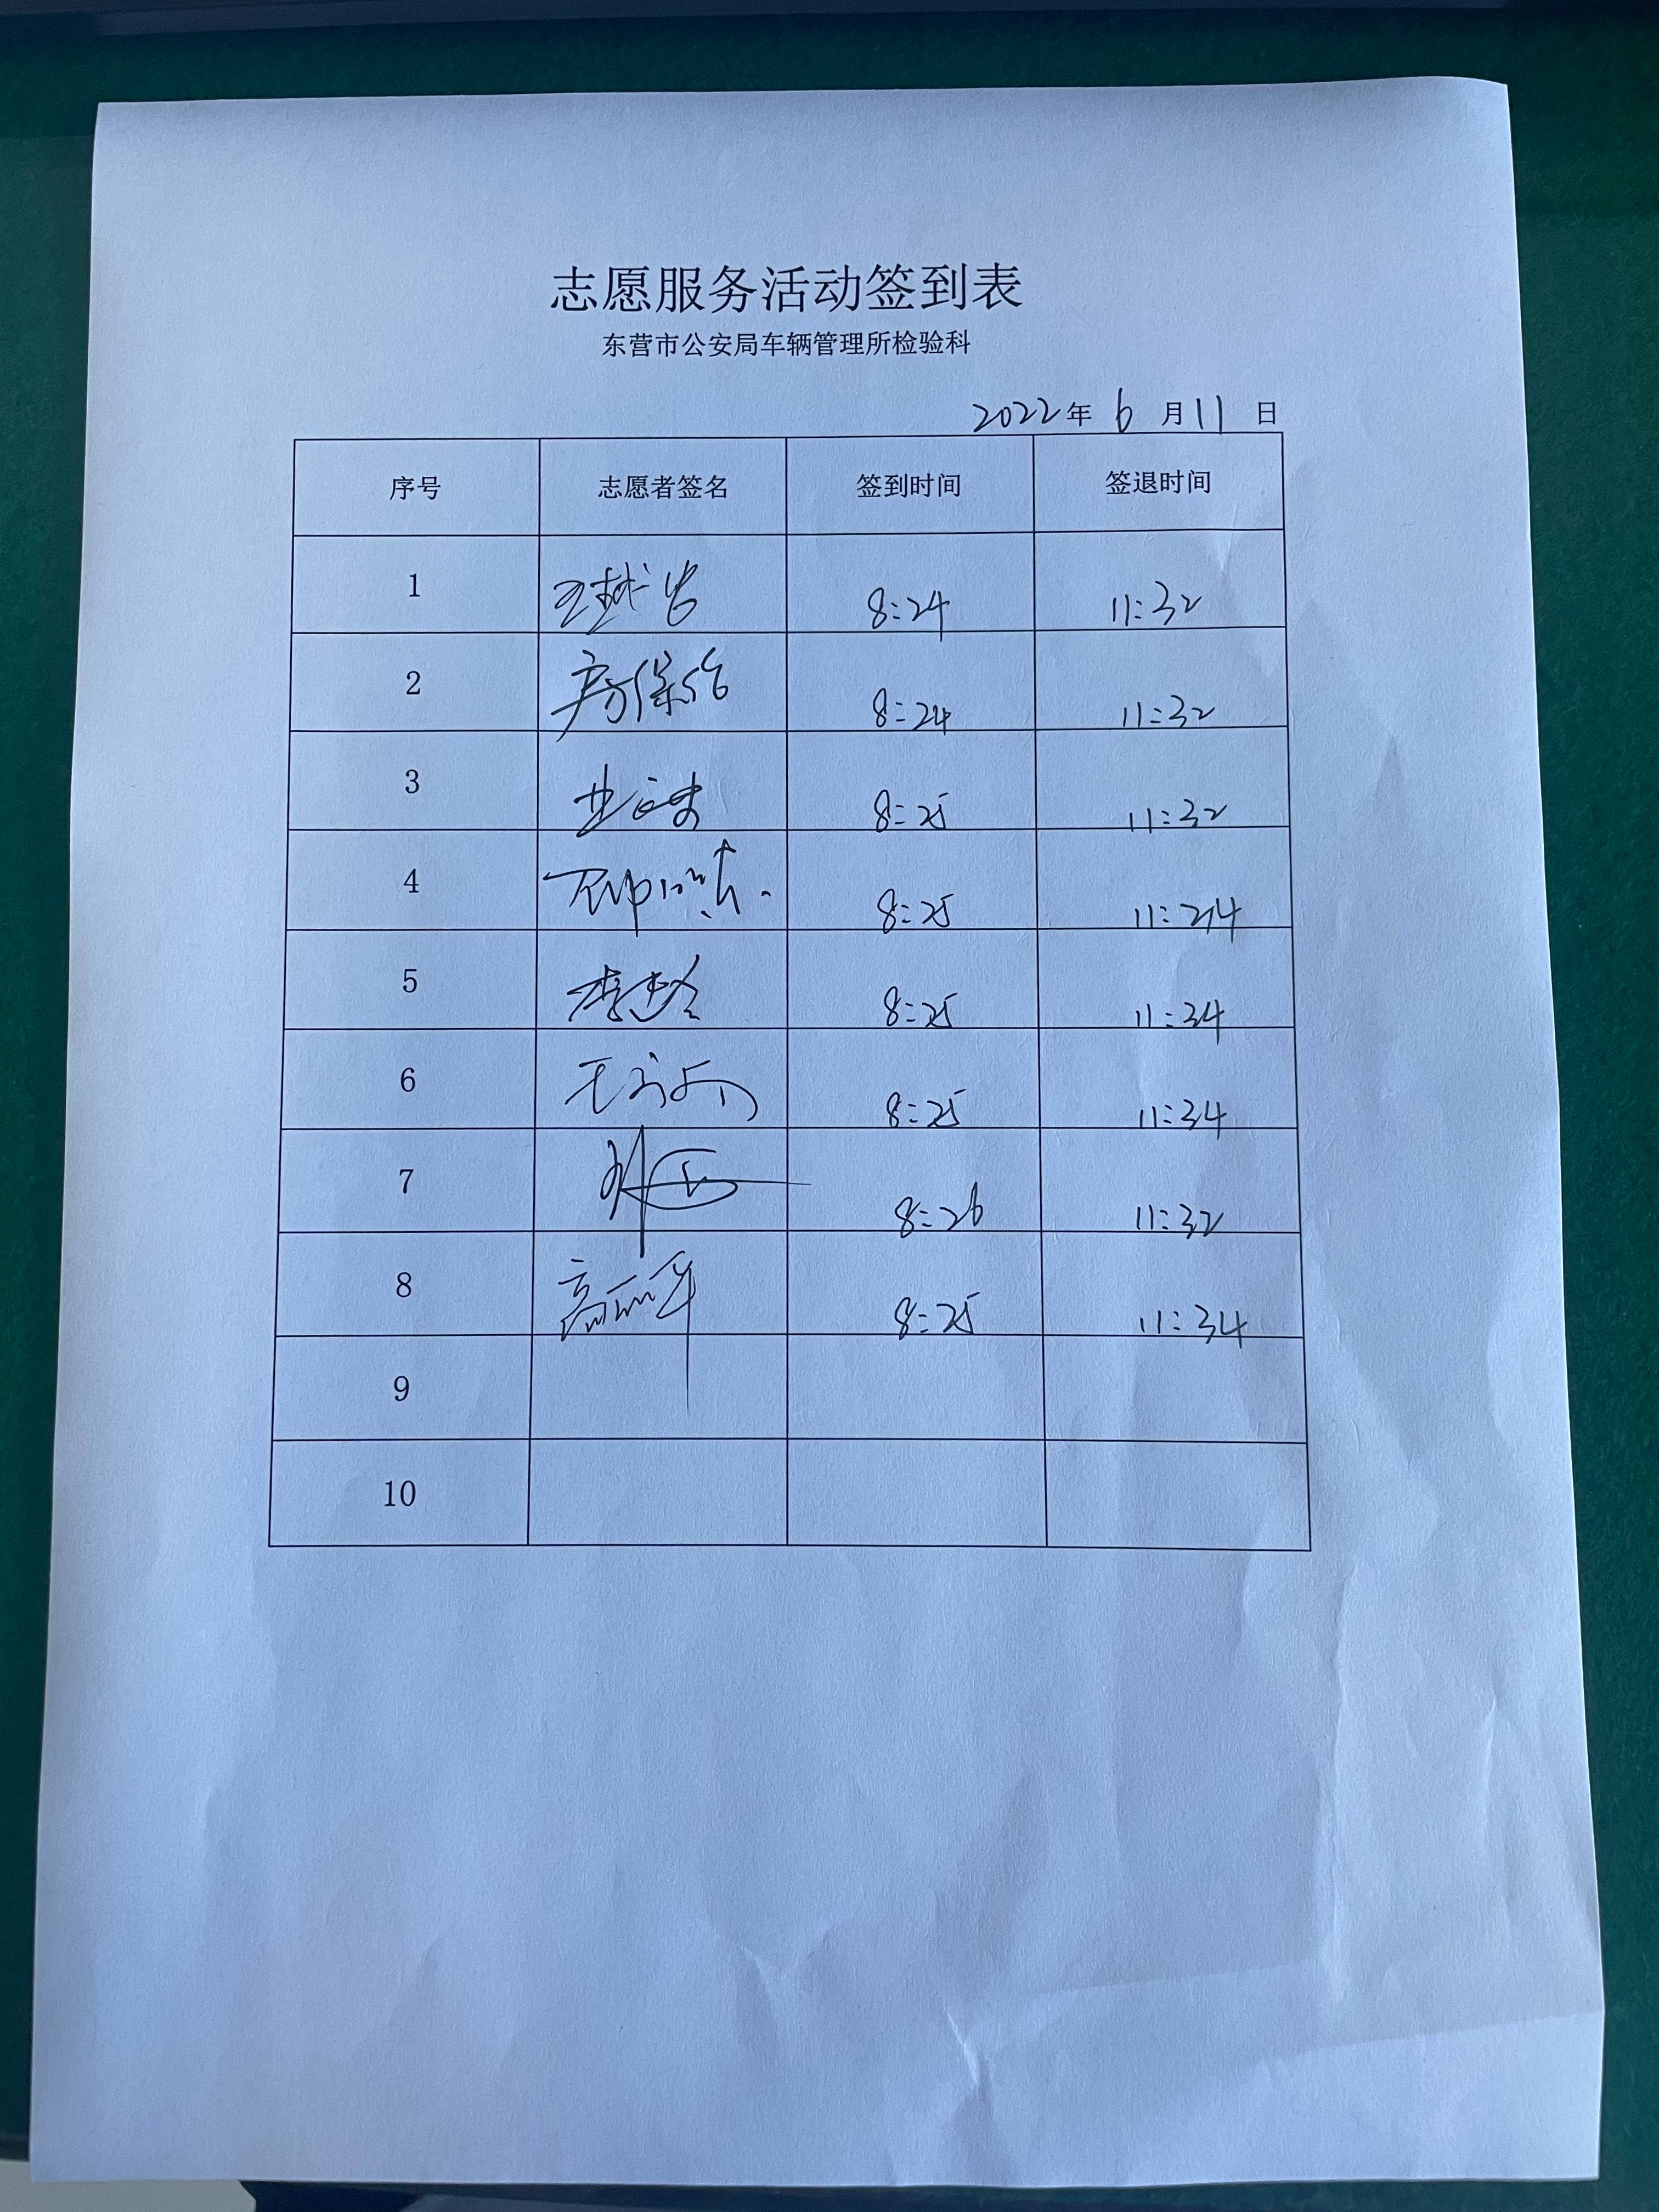 志愿服务活动签到表
东营市公安局车辆管理所检验科
2022年 6 月 11 日
序号 志愿者签名 签到时间 签退时间
1 8:24 11:32
2 房保 8:24 11:32
3 8:25 11:32
4 8:25
5 李 8:25 11:34
6 王 8:25 11:34
7 8:26 11:32
8 高丽军 8:25 11:34
9
10